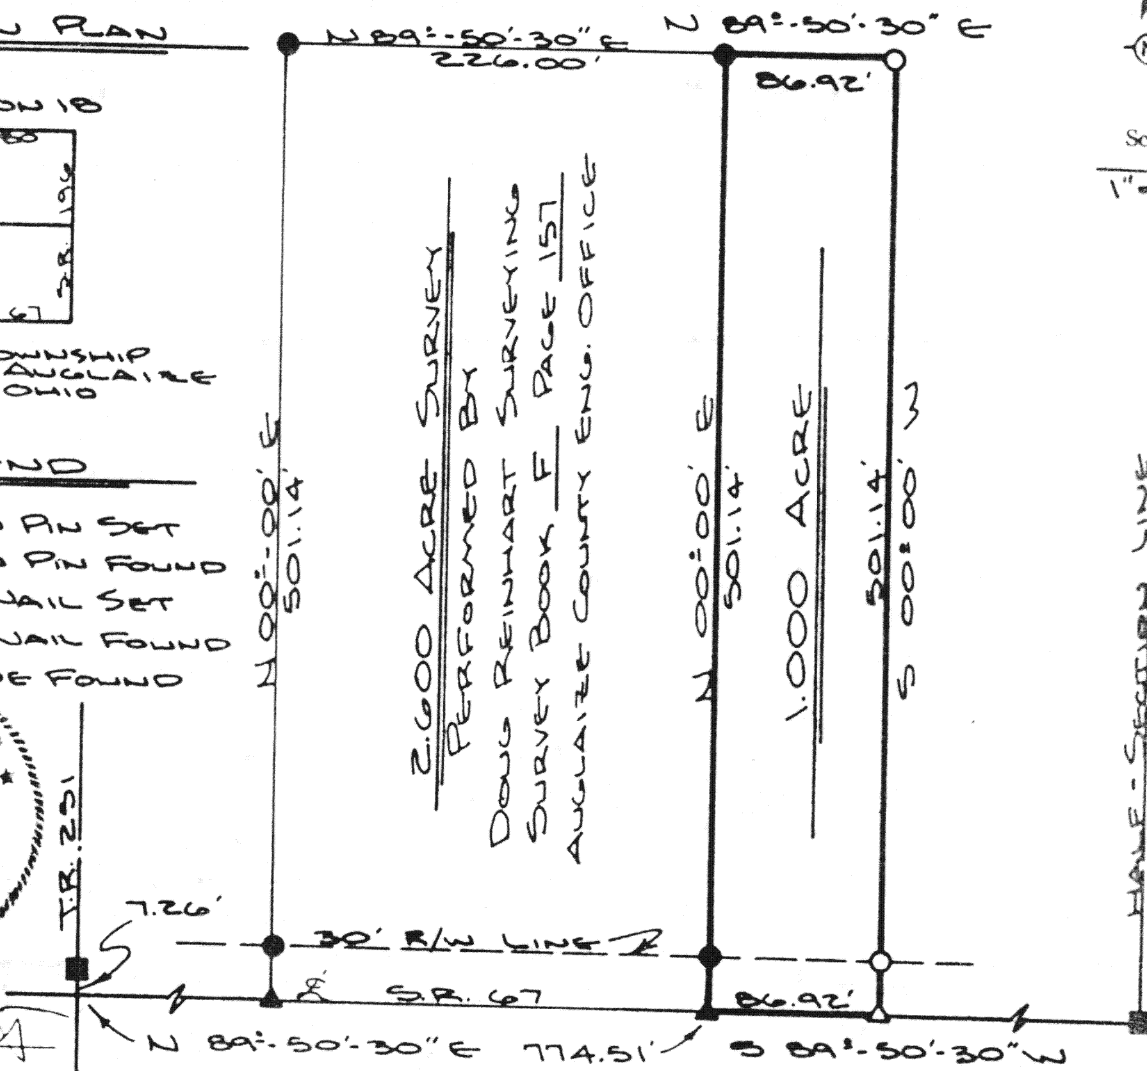 N PLAN
ON 18
60
S.R. 196
67
OWNSHIP
AUGLAIZE
OHIO
ND
PIN SET
PIN FOUND
NAIL SET
NAIL FOUND
E FOUND
T.R. 251
7.26'
N 89°-50'-30" E
226.00'
N 89°-50'-30" E
86.92'
Sc
1"=
N 00°-00' E
501.14'
2.600 ACRE SURVEY
PERFORMED BY
DOUG REINHART SURVEYING
SURVEY BOOK F PAGE 157
AUGLAIZE COUNTY ENG. OFFICE
N 00°-00' E
501.14'
1.000 ACRE
501.14'
S 00°-00' W
HALF-SECTION LINE
30' R/W LINE
S.R. 67
86.92'
N 89°-50'-30" E 774.51'
S 89°-50'-30" W